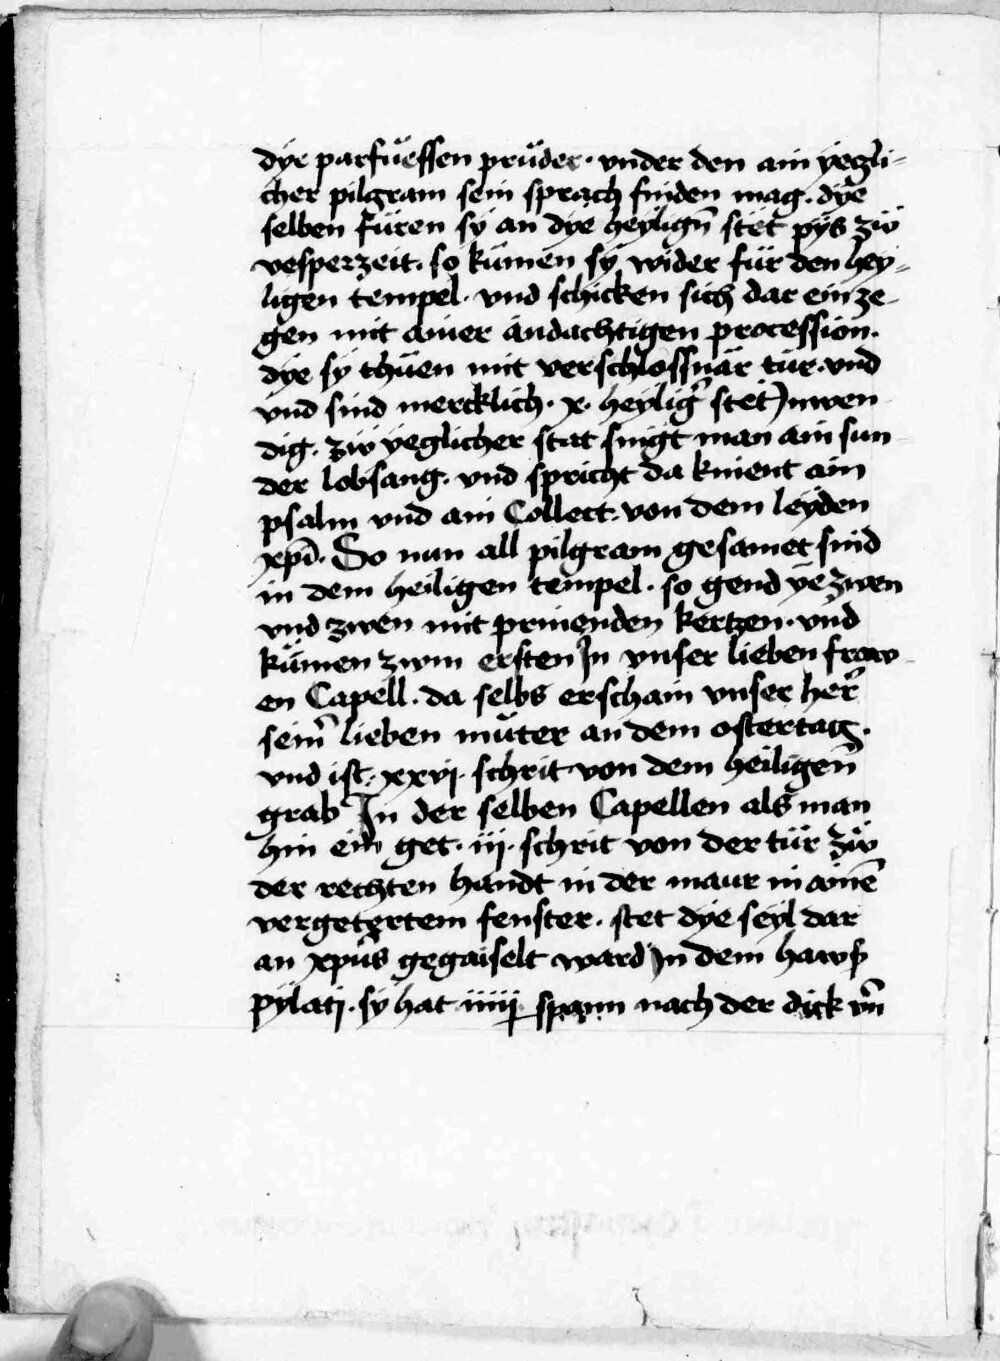 dÿe parfuͤessen pruͤder · vnder den ain yegli-
cher pilgram sein sprach finden mag · dÿe
selben füren sÿ an dÿe heÿligñ stet pÿs zuͦ
vesperzeit · so kümen sÿ wider für den hey-
ligen tempel · vnd schicken sich dar ein ze-
gen mit ainer andachtigen procession ·
dÿe sÿ thüen mit verschlossnär tür · vnd
vnd sind mercklich · x · heylig̃ stet Inwen
dig · zuͦ yeglicher stat singt man ain sun
der lobsang · vnd spricht da knient ain
psalm vnd ain Collect · von dem leÿden
xpī · So nun all pilgram gesamet sind
in dem heiligen tempel · so gend ÿe zwen
vnd zwen mit prinenden kertzen · vnd
kümen zwm ersten In vnser lieben frow
en Capell · da selbs erschain vnser her̃
seim̃ lieben muͤter an dem ostertag ·
vnd ist · xxvj · schrit von dem heiligen̄
grab In der selben Capellen als man
hin ein get · iij · schrit von der tür zuͦ
der rechten handt in der maur in ainē
vergetertem fenster · stet dÿe seÿl dar
an xpūs gegaiselt ward In dem haws
pÿlatj · sÿ hat iiij spann nach der dick vn̄